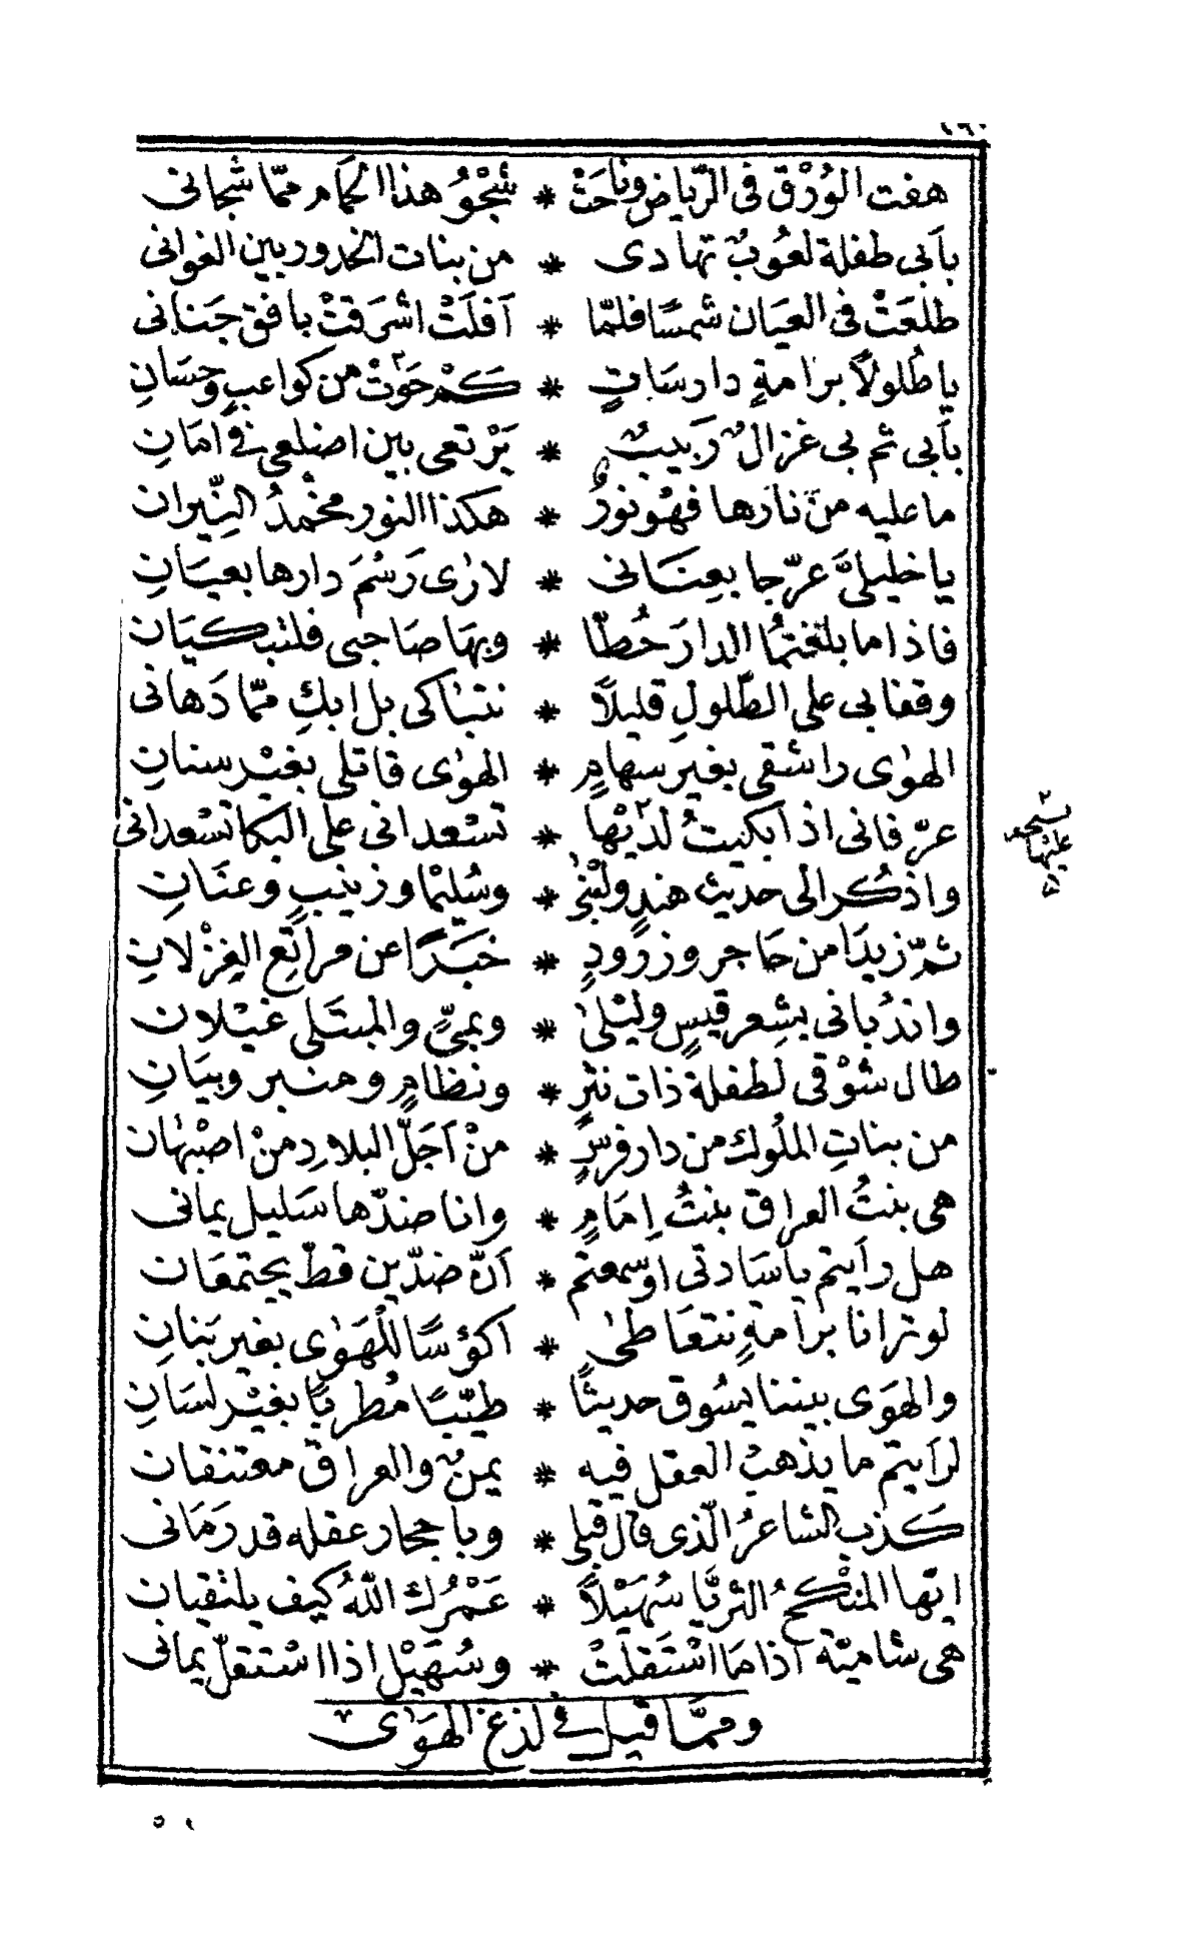 هفت الوُرْق فى الرّياض وناحَتْ * شَجْوُ هذا الحَمَام ممّا شجانى
بأبى طفلة لعُوبٌ تهادى * من بنات الخدور بين الغوانى
طلعَتْ فى العيَان شمسًا فلمّا * اَفلَتْ اشرَقتْ بافق جَنانى
ياطُلولاً برامةٍ دارسَاتٍ * كَمْ حَوَتْ من كواعبٍ وحِسَانِ
بأبى ثم بى غزالٌ رَبيبٌ * يَرْتعى بين اضلعى فى امَانِ
ما عليه من نارها فهْو نورٌ * هكذا النور مخْمِدُ النِّيران
ياخليلىَّ عرّجا بعِنَانى * لارٰى رَسْمَ دارها بعيَانِ
فاذا ما بلغتمُا الدارَ حُطّا * وبهَا صَاحبى فلتبكيَان
وقفا بى على الطّلولِ قليلاً * نتبٰاكى بل ابكِ ممّا دَهانى
الهوٰى راشقى بغير سهامٍ * الهوٰى قاتلى بغيْر سنانِ
عرّفانى اذا بكيتُ لدَيْها * تسْعدانى على البكا تسْعدانى
واذكُرا لى حديث هندٍ ولبْنٰى * وسُليْما وزينبٍ وعنَانِ
ثمّ زيدَا من حَاجر وزرُودٍ * خبَرًا عن مراتعِ الغِزْلانِ
واندُبانى بشِعر قيسٍ وليْلىٰ * وبمىٍّ والمبتَلى غيْلان
طال شوْقى لطفلة ذات نثرٍ * ونظامٍ ومنبر وبيَانِ
من بناتِ الملُوك من دار فرسٍ * منْ اَجَلّ البلادِ منْ اصْبهَان
هى بنتُ العراق بنتُ اِمَامٍ * وانا ضدّها سَليل يمانى
هل رأيتم ياسَادتى اوسمعتم * اَنّ ضدّين قطّ يجتمعَان
لوترانا برامةٍ نتعَاطىٰ * اكؤسًا للْهَوٰى بغير بَنانِ
والهوَى بيننا يسُوق حديثًا * طيّبًا مُطربًا بغيْر لسَانِ
لرأيتم ما يذهبُ العقل فيه * يمنٌ والعراق معتنقان
كَذب الشاعرُ الّذى قال قبلى * وباحجار عقله قد رَمَانى
ايّها المنْكحُ الثريَّا سُهَيْلاً * عَمْرُك اللّٰهُ كيف يلتقيان
هى شاميّة اذا مَا اسْتَقلَتْ * وسُهَيْل اذا اسْتقلّ يمانى
وممَّا قيل فى لذع الهَوٰى